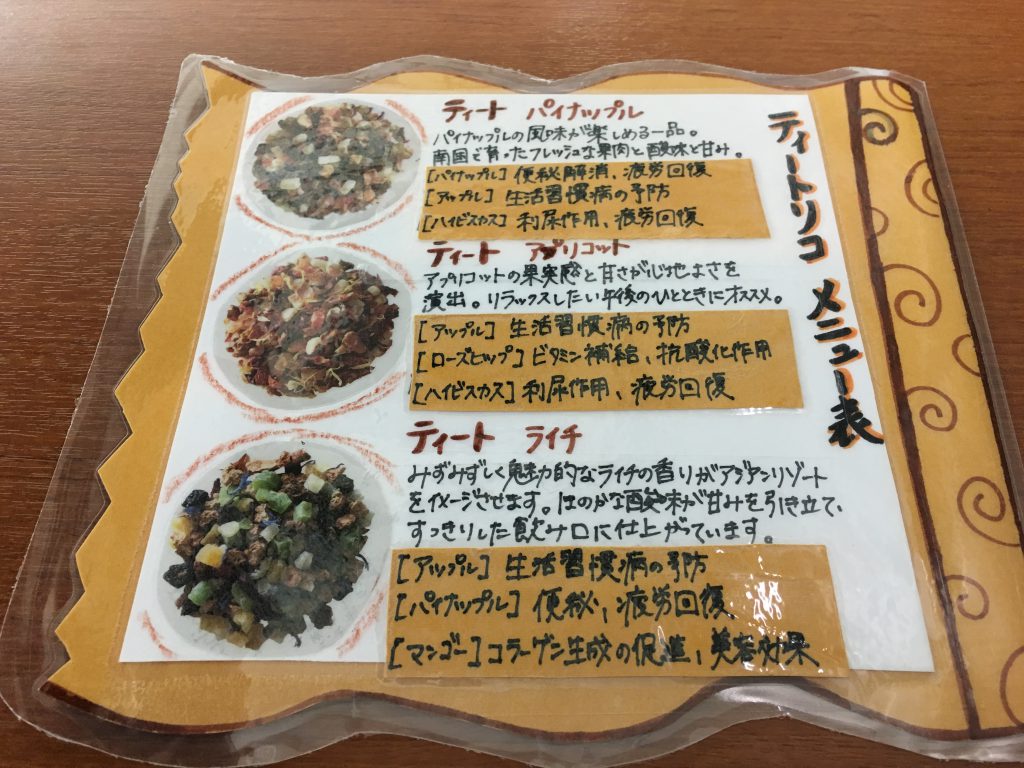 ティートリコ メニュー表
ティート パイナップル
パイナップルの風味が楽しめる一品。
南国で育ったフレッシュな果肉と酸味と甘み。
[パイナップル] 便秘解消、疲労回復
[アップル] 生活習慣病の予防
[ハイビスカス] 利尿作用、疲労回復
ティート アプリコット
アプリコットの果実感と甘さが心地よさを
演出。リラックスしたい午後のひとときにオススメ。
[アップル] 生活習慣病の予防
[ローズヒップ] ビタミン補給、抗酸化作用
[ハイビスカス] 利尿作用、疲労回復
ティート ライチ
みずみずしく魅力的なライチの香りがアジアンリゾート
をイメージさせます。ほのかな酸味が甘みを引き立て、
すっきりした飲み口に仕上がっています。
[アップル] 生活習慣病の予防
[パイナップル] 便秘、疲労回復
[マンゴー] コラーゲン生成の促進、美容効果